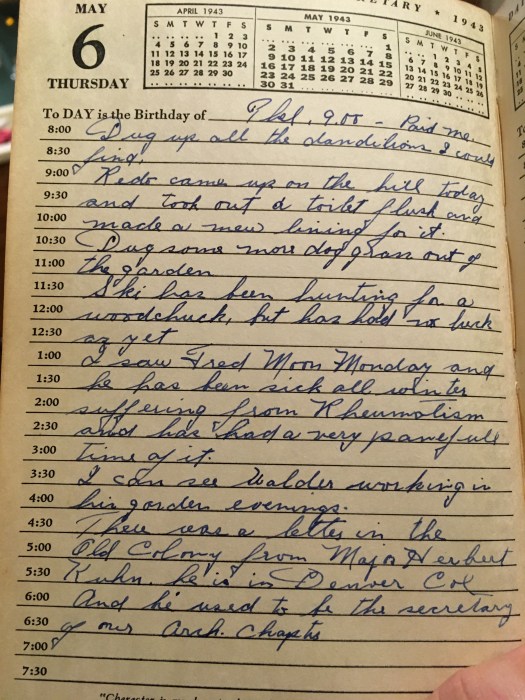 ETARY ★ 1943
MAY
6
THURSDAY
APRIL 1943
S M T W T F S
. . . . 1 2 3
4 5 6 7 8 9 10
11 12 13 14 15 16 17
18 19 20 21 22 23 24
25 26 27 28 29 30
MAY 1943
S M T W T F S
. . . . . . 1
2 3 4 5 6 7 8
9 10 11 12 13 14 15
16 17 18 19 20 21 22
23 24 25 26 27 28 29
30 31
JUNE 1943
S M T W T F S
. . 1 2 3 4 5
6 7 8 9 10 11 12
13 14 15 16 17 18 19
20 21 22 23 24 25 26
27 28 29 30
To DAY is the Birthday of 9.00 - Paid me.
8:00 Dug up all the dandilions I could
8:30 find.
9:00 Redo came up on the hill today
9:30 and took out a toilet flush and
10:00 made a new lining for it.
10:30 Dug some more dog grass out of
11:00 the garden
11:30 Ski has been hunting for a
12:00 woodchuck, but has had no luck
12:30 as yet
1:00 I saw Fred Moon Monday and
1:30 he has been sick all winter
2:00 suffering from Rheumatism
2:30 and has had a very paneful
3:00 time of it.
3:30 I can see Walder working in
4:00 his garden evenings.
4:30 There was a letter in the
5:00 Old Colony from Major Herbert
5:30 Kuhn. he is in Denver Col
6:00 And he used to be the secretary
6:30 of our Arch. Chapts
7:00
7:30
"Character is